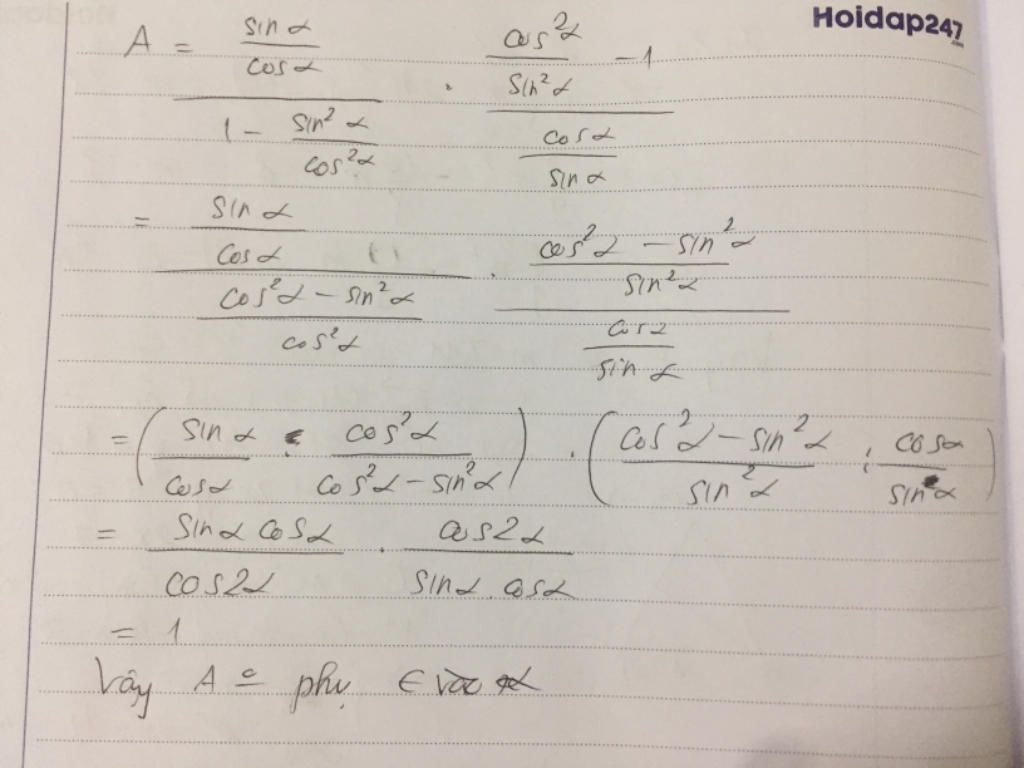 Hoidap247.com
A = \frac{\frac{sin α}{cos α}}{1 - \frac{sin² α}{cos² α}} . \frac{\frac{cos² α}{sin² α} - 1}{\frac{cos α}{sin α}}
= \frac{\frac{sin α}{cos α}}{\frac{cos² α - sin² α}{cos² α}} . \frac{\frac{cos² α - sin² α}{sin² α}}{\frac{cos α}{sin α}}
= (\frac{sin α}{cos α} . \frac{cos² α}{cos² α - sin² α}) . (\frac{cos² α - sin² α}{sin² α} : \frac{cos α}{sin α})
= \frac{sin α cos α}{cos 2α} . \frac{cos 2α}{sin α . cos α}
= 1
Vậy A phụ ∈ vào α